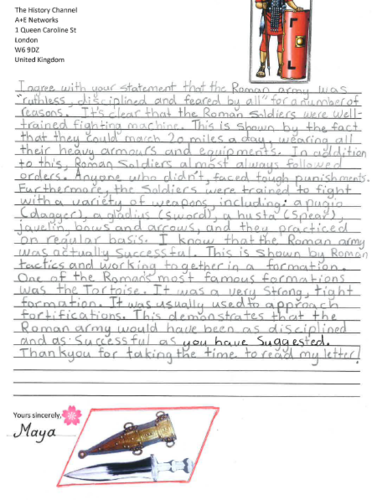 The History Channel
A+E Networks
1 Queen Caroline St
London
W6 9DZ
United Kingdom
I agree with your statement that the Roman army was
"ruthless, disciplined and feared by all" for a number of
reasons. It's clear that the Roman Soldiers were well-
trained fighting machine. This is shown by the fact
that they could march 20 miles a day, wearing all
their heavy armours and equipments. In addition
to this, Roman Soldiers almost always followed
orders. Anyone who didn't, faced tough punishments.
Furthermore, the Soldiers were trained to fight
with a variety of weapons, including: a pugio
(dagger), a gladius (sword), a hasta (spear),
javelin, bows and arrows, and they practiced
on regular basis. I know that the Roman army
was actually Successful. This is shown by Roman
tactics and working together in a formation.
One of the Roman's most famous formations
was the Tortoise. It was a very Strong, tight
formation. It was usually used to approach
fortifications. This demonstrates that the
Roman army would have been as disciplined
and as Successful as you have Suggested.
Thankyou for taking the time to read my letter!
Yours sincerely,
Maya